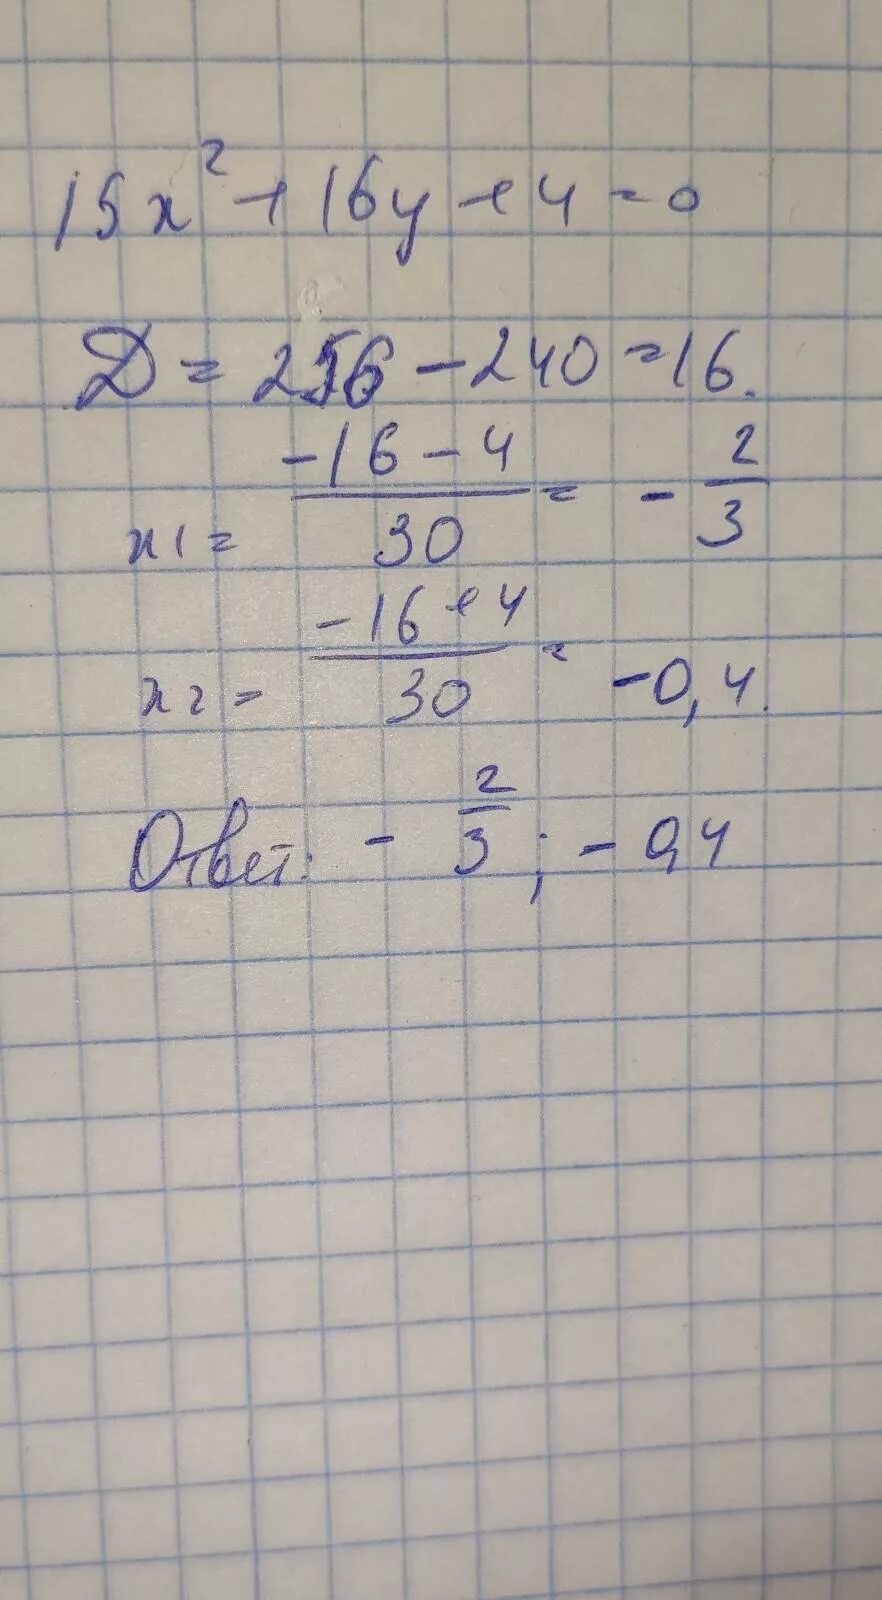 15x² + 16y + 4 = 0
D = 256 - 240 = 16.
x1 = \frac{-16-4}{30} = -\frac{2}{3}
x2 = \frac{-16+4}{30} = -0,4.
Ответ: -\frac{2}{3}; -0,4